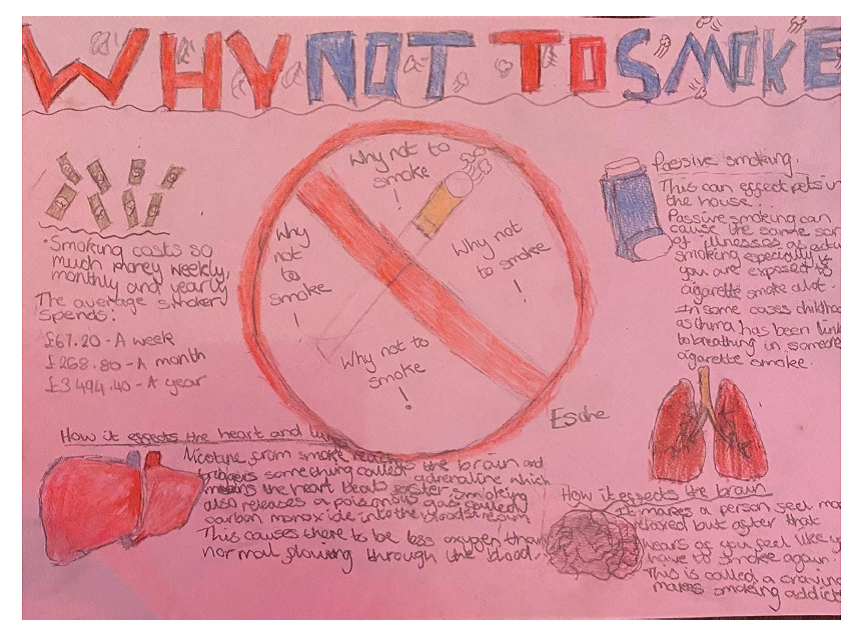 WHY NOT TO SMOKE
Why not to
smoke
!
Why
not
to
smoke
!
Why not
to smoke
!
Why not to
smoke
!
Esche
Smoking costs so
much money weekly,
monthly and yearly
The average smoker
spends:
£67.20 - A week
£268.80 - A month
£3 494.40 - A year
Passive smoking.
This can effect pets in
the house.
Passive smoking can
cause the same sor
of illnesses as
smoking especially if
you are exposed to
cigarette smoke alot.
In some cases
asthma has been
to breathing in
cigarette smoke.
How it effects the heart and
Nicotine from smoke to the brain and
triggers something called adrenaline which
means the heart beats faster. Smoking
also releases a poisonous gas called
carbon monoxide into the bloodstream
This causes there to be less oxygen than
normal flowing through the blood.
How it effects the brain
It makes a person feel
relaxed but after that
wears of you feel like
have to smoke again.
This is called a craving
makes smoking